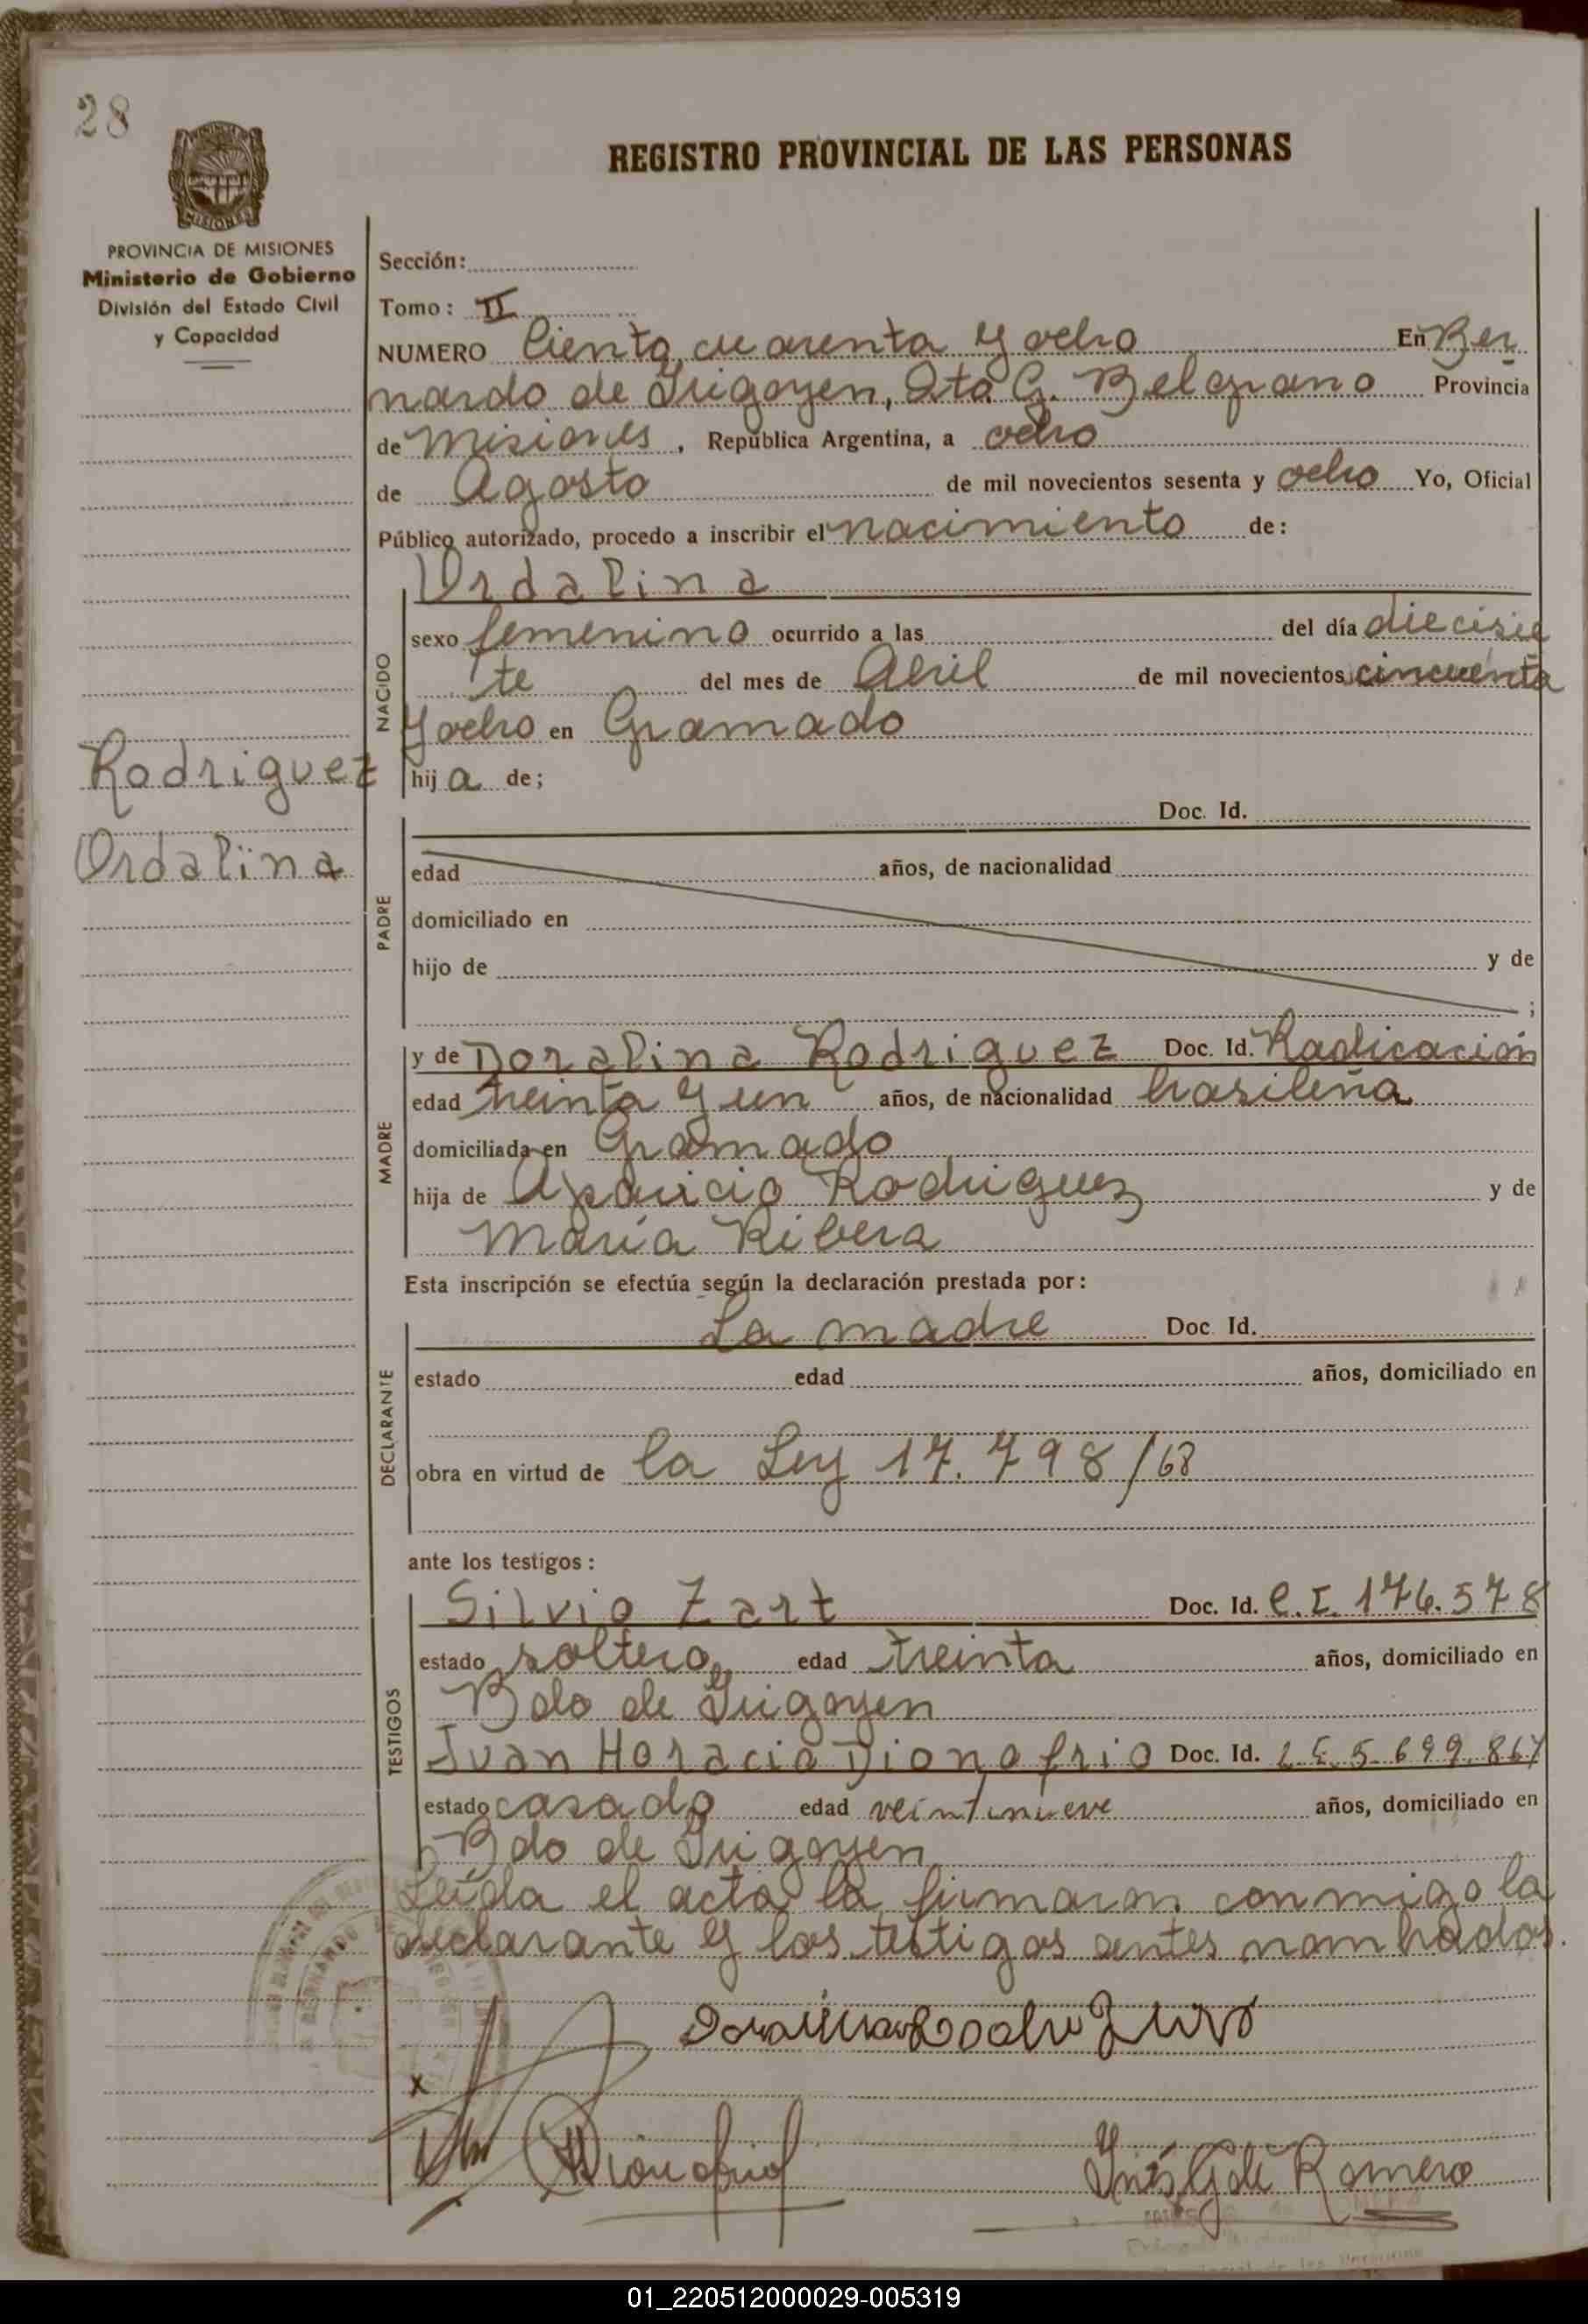 28
REGISTRO PROVINCIAL DE LAS PERSONAS
MISIONES
PROVINCIA DE MISIONES
Ministerio de Gobierno
División del Estado Civil
y Capacidad
Sección:
Tomo: II
NUMERO Ciento cuarenta y ocho En Ber
nardo de Irigoyen, Dto G. Belgrano Provincia
de Misiones, República Argentina, a ocho
de Agosto de mil novecientos sesenta y ocho Yo, Oficial
Público autorizado, procedo a inscribir el nacimiento de:
Ordalina
NACIDO
sexo femenino ocurrido a las del día diecisie
te del mes de Abril de mil novecientos cincuenta
y ocho en Gramado
hija de;
Rodriguez
Ordalina
PADRE
Doc. Id.
edad años, de nacionalidad
domiciliado en
hijo de y de
;
MADRE
y de Doralina Rodriguez Doc. Id. Radicación
edad treinta y un años, de nacionalidad brasileña
domiciliada en Gramado
hija de Aparicio Rodriguez y de
María Ribera
Esta inscripción se efectúa según la declaración prestada por:
DECLARANTE
La madre Doc. Id.
estado edad años, domiciliado en
obra en virtud de la Ley 17.798/68
ante los testigos:
TESTIGOS
Silvio Zart Doc. Id. C.I. 176.578
estado soltero edad treinta años, domiciliado en
Bdo de Irigoyen
Juan Horacio Dionofrio Doc. Id. L E. 5.699.867
estado casado edad veintinueve años, domiciliado en
Bdo de Irigoyen
Leída el acta la firmaron conmigo la
declarante y los testigos antes nombrados.
x
Inés G de Romero
01_220512000029-005319